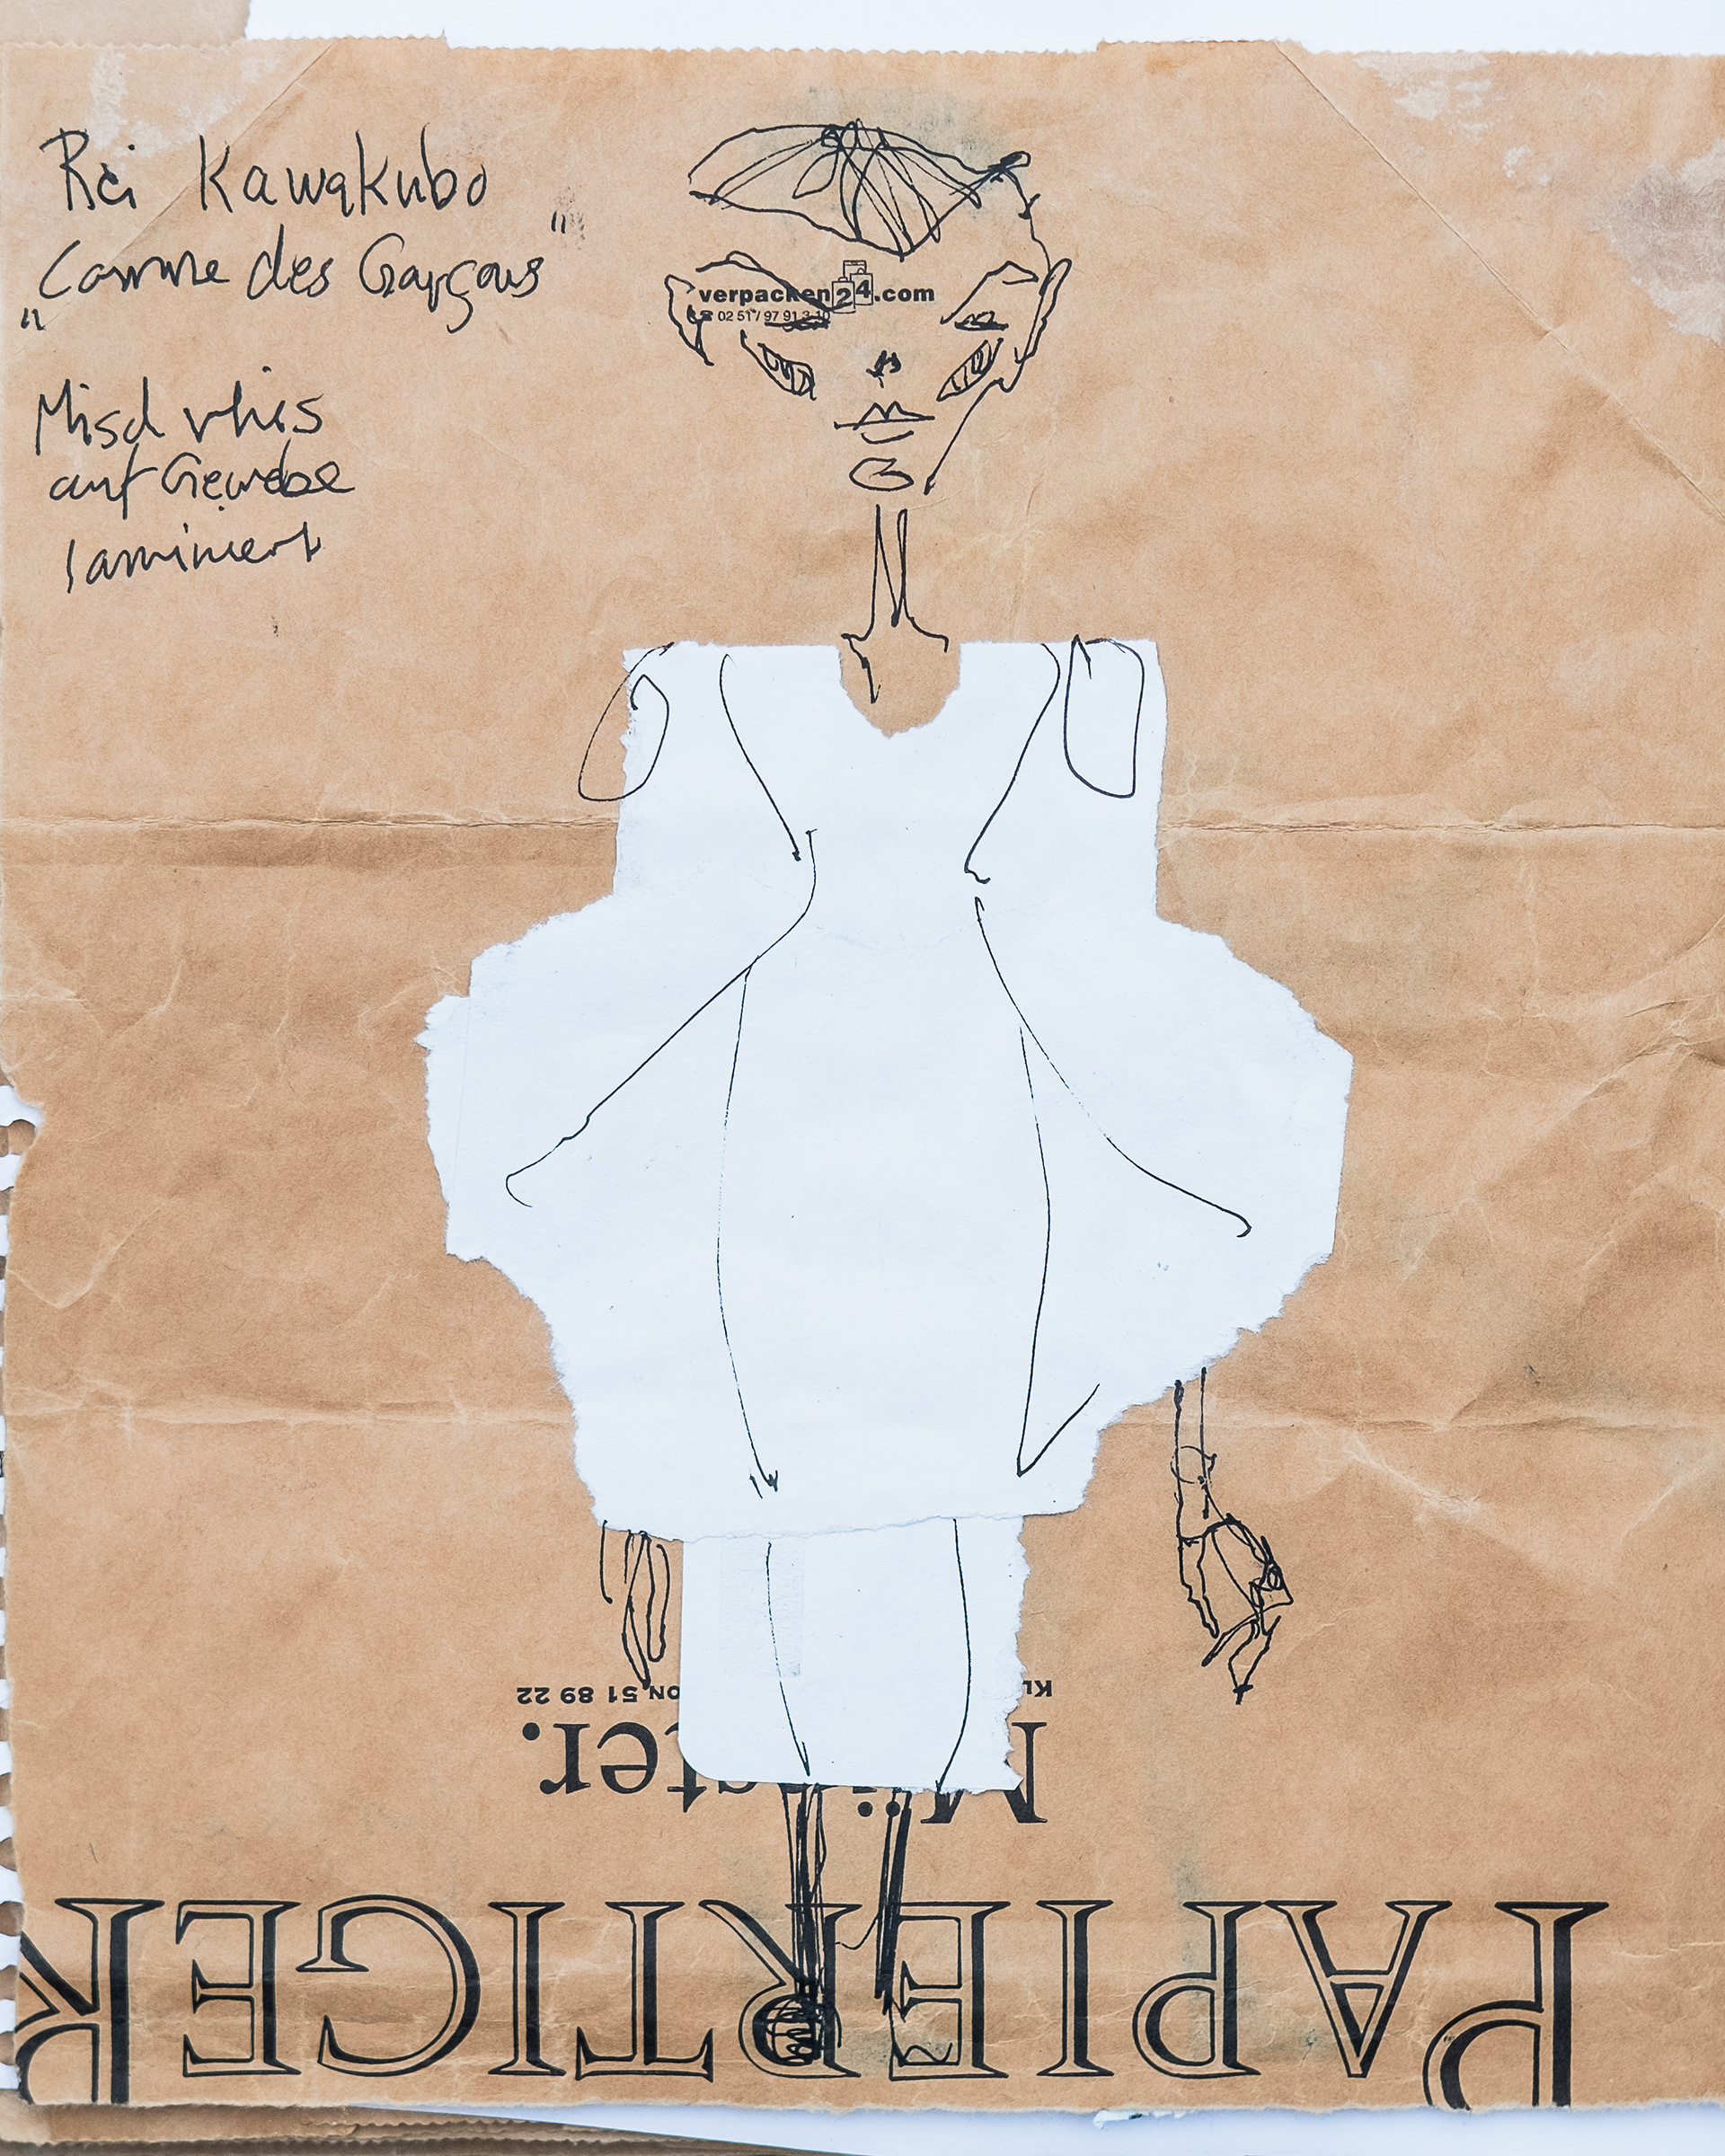 Rei Kawakubo
„Comme des Garçons"
auf Gewebe
laminiert
verpacken24.com
☎ 02 51 / 97 91 3-10
PAPIERTIGER
Münster.
ON 51 89 22